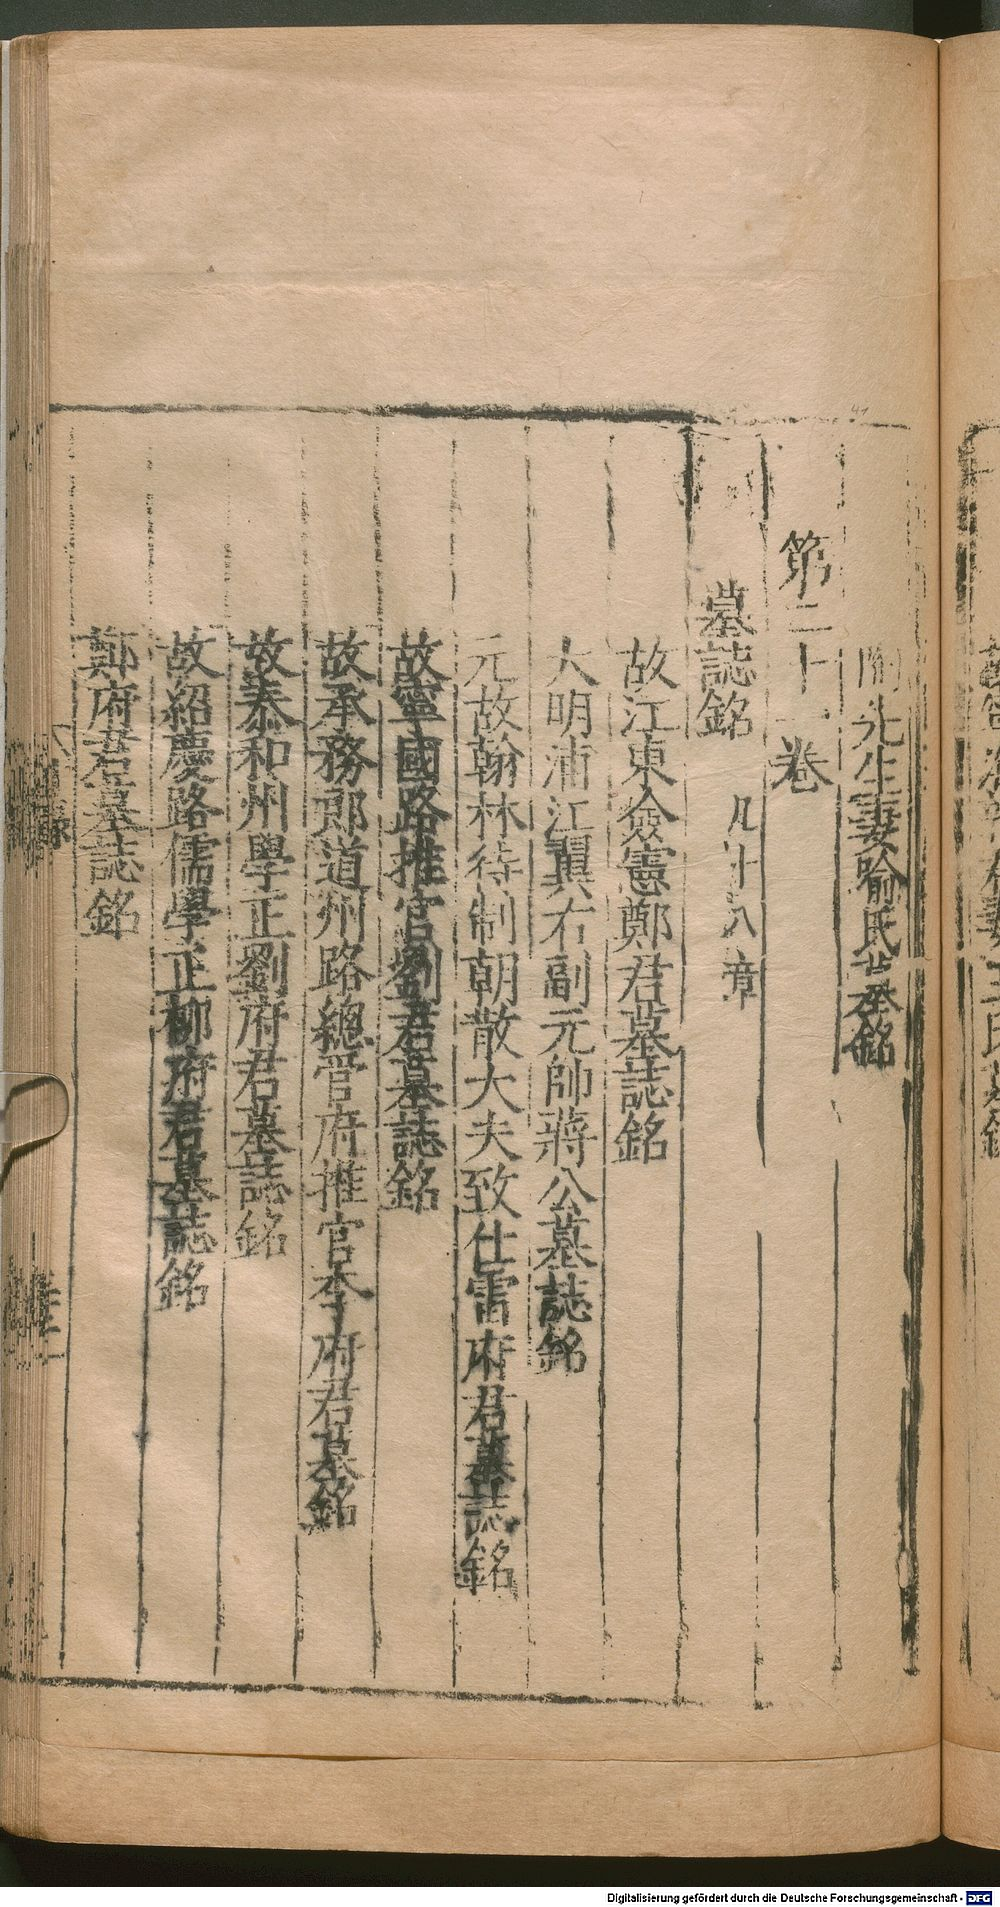 先生妻喻氏墓銘
第二十一卷
墓誌銘 凡十八章
故江東僉憲鄭君墓誌銘
大明浦江翼右副元帥蔣公墓誌銘
元故翰林待制朝散大夫致仕雷府君墓誌銘
故寧國路推官劉君墓誌銘
故承務郎道州路總管府推官李府君墓銘
故泰和州學正劉府君墓誌銘
故紹慶路儒學正柳府君墓誌銘
鄭府君墓誌銘
41
Digitalisierung gefördert durch die Deutsche Forschungsgemeinschaft - DFG